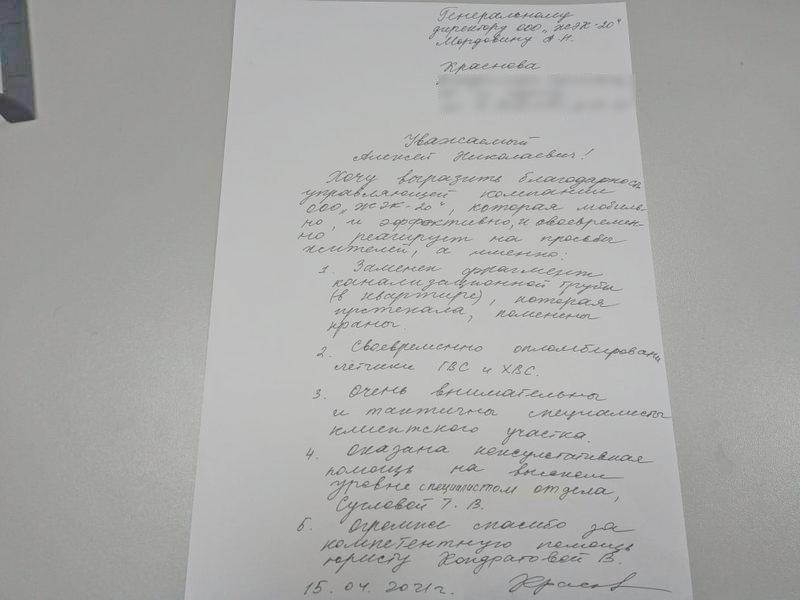 Генеральному
директору ООО „ЖЭК-20“
Мордовину А.Н.
Краснова
Уважаемый
Алексей Николаевич!
Хочу выразить благодарность
управляющей компании
ООО „ЖЭК-20“, которая мобиль-
но, и эффективно, и своевремен-
но реагирует на просьбы
жителей, а именно:
1. Заменен фрагмент
канализационной трубы
(в квартире), которая
протекала, поменены
краны.
2. Своевременно опломбированы
летчики ГВС и ХВС.
3. Очень внимательны
и тактичны специалисты
клиентского участка.
4. Оказана консультативная
помощь на высоком
уровне специалистом отдела,
Сусловой Т. В.
5. Огромное спасибо за
компетентную помощь
юристу Кондратовой В.
15. 04. 2021г.